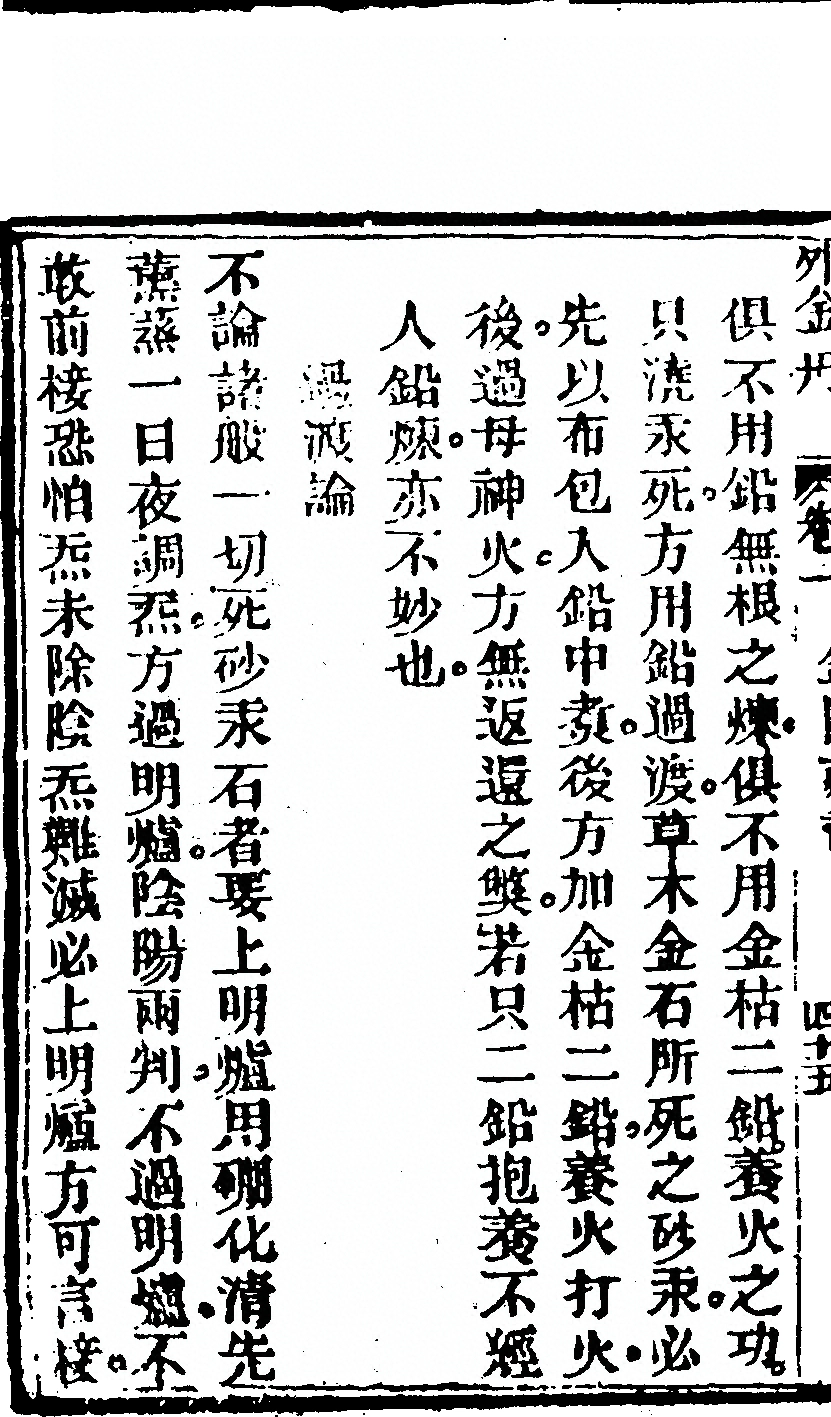 外金丹 卷一 四十五
俱不用鉛無根之煉。俱不用金枯二鉛。養火之功。
只澆汞死。方用鉛過渡。草木金石所死之砂汞。必
先以布包入鉛中㷟。後方加金枯二鉛。養火打火。
後。過母神火。方無返還之獘。若只二鉛抱養不經
人鉛煉。亦不妙也。
過渡論
不論諸般一切死砂汞石者要上明爐用硼化清先
薰蒸一日夜調炁。方過明爐。陰陽兩判。不過明爐。不
敢前接恐怕炁未除陰炁難滅必上明爐方可言接。